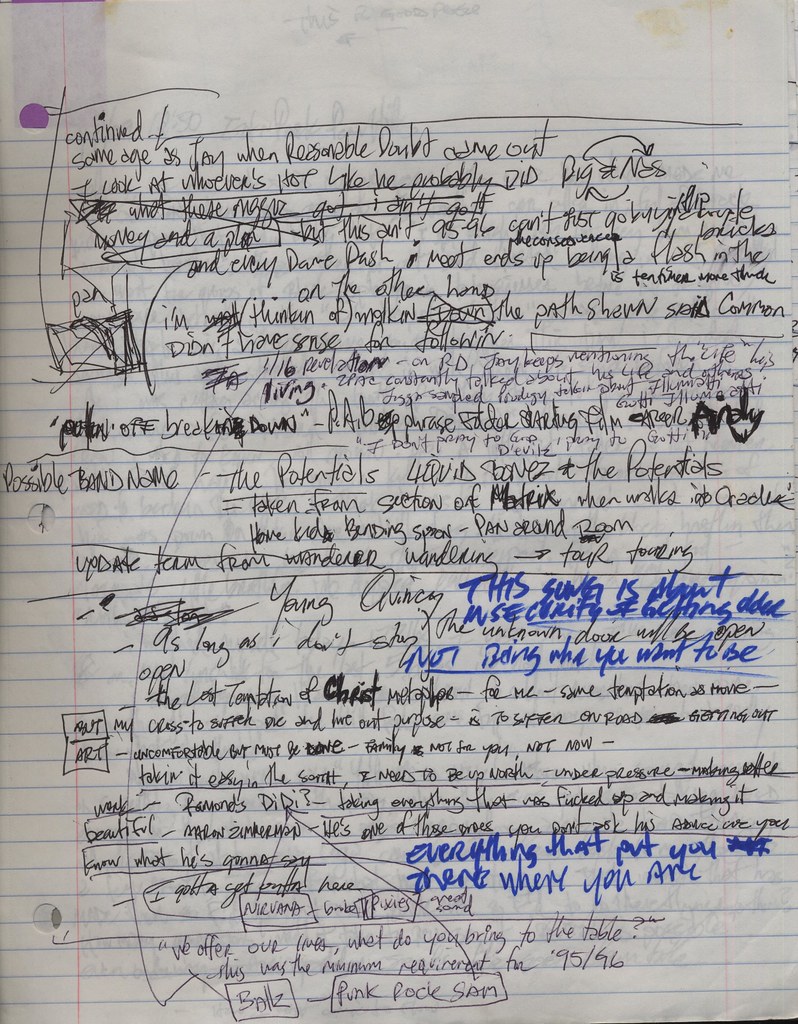 continued
same age as Jay when Reasonable Doubt came out
I look at whoever's hot like he probably DID Big & Nas
what these got i ain't got it
money and a plan - but this ain't 95-96 can't just go buyin couple
bricks
and every Dame Dash i meet ends up being a flash in the
pan
on the other hand
i'm (thinkin of) walkin the path shown said Common
Didn't have sense for followin.
3/16 Revelation - on R.D, Jay keeps mentioning the "life" he's
living. 2PAC constantly talked about his life and others
Jigga sampled Prodigy talkin about Illuminatti
"I Don't pray to God i pray to Gotti"
D'evils
Possible BAND NAME - the Potentials LIQUID & the Potentials
= taken from section of Matrix when walks into Oracle's
Home kid Bending spoon - PAN around Room
UPDATE term from wanderer wandering → tour touring
Young Quincy
THIS song is about
INSECURITY & Getting older
- As long as i don't stop the unknown door will be open
open
NOT Being who you want to be
- the Last Temptation of Christ metaphor - for me - same temptation as movie -
BUT my cross to suffer die and live out purpose - is to suffer on road GETTING OUT
ART - uncomfortable but must be done - family is not for you, not now -
takin it easy in the south, I need to be up North - under pressure - making better
work - Ramond's DiDi? - taking everything that was fucked up and making it
beautiful - AARON ZIMMERMAN - He's one of those ones you dont ask his advice cuz you
know what he's gonna say
EVERYTHING that put you
there where you Are
- I gotta get outta here
NIRVANA - PIXIES - sound
"we offer our lives, what do you bring to the table?"
- this was the minimum requirement for '95/96
BAllz - PUNK ROCK SAM